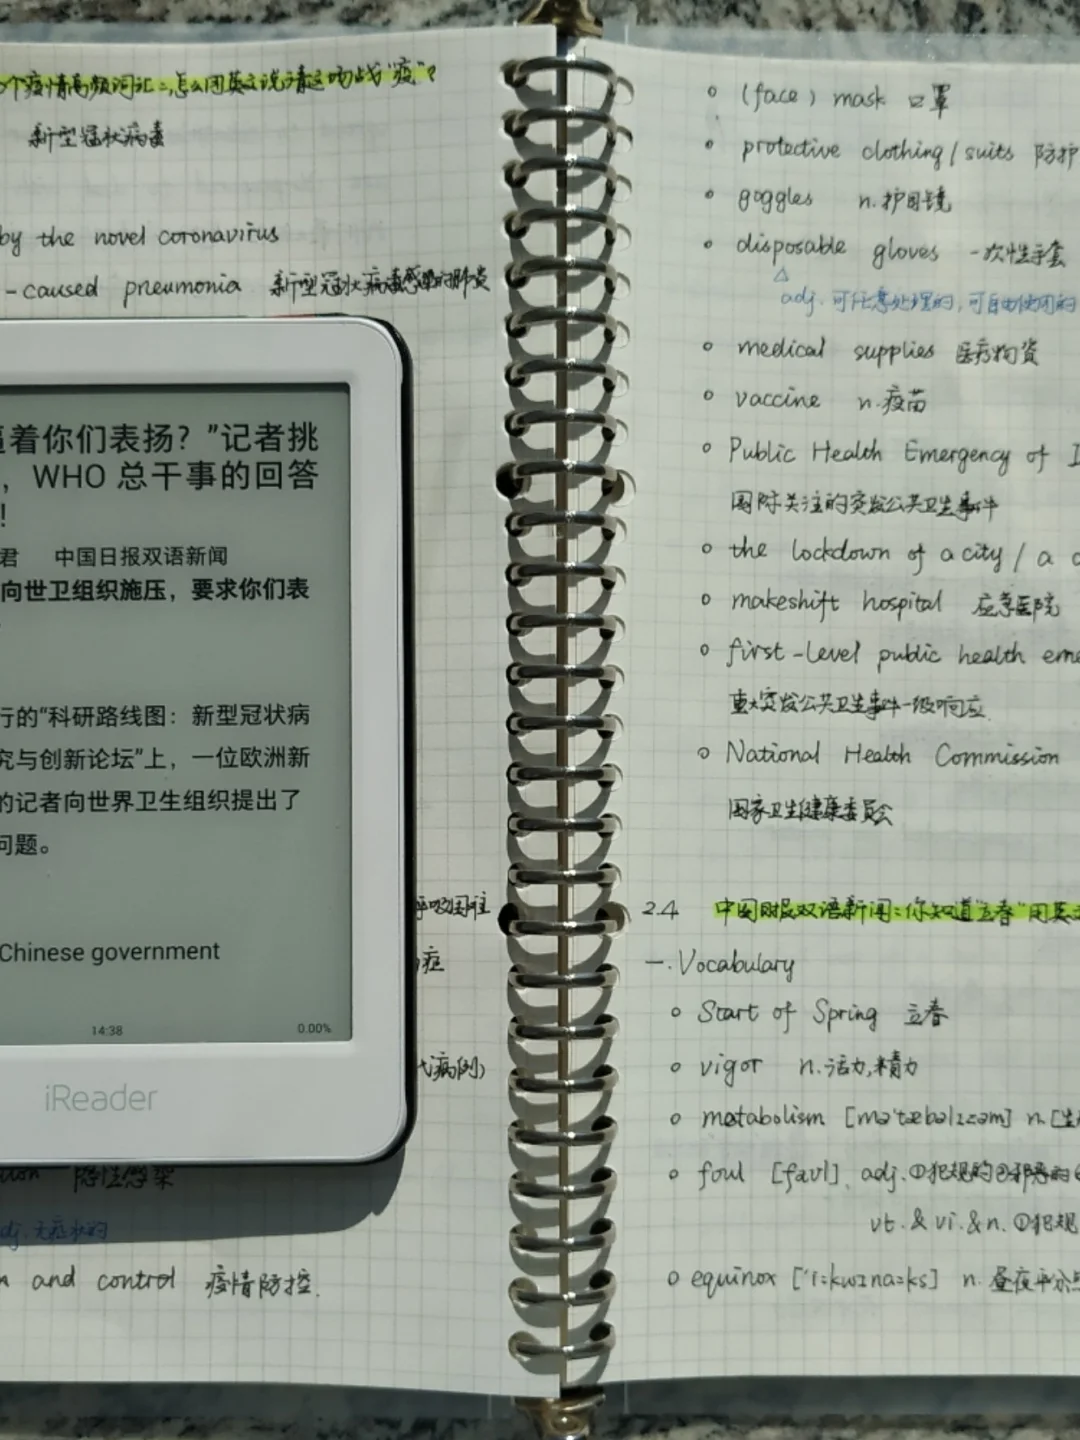 个疫情高频词汇：怎么用英文说清这场战“疫”？
新型冠状病毒
by the novel coronavirus
-caused pneumonia 新型冠状病毒感染的肺炎
着你们表扬？”记者挑
，WHO 总干事的回答
！
君 中国日报双语新闻
向世卫组织施压，要求你们表
行的“科研路线图：新型冠状病
究与创新论坛”上，一位欧洲新
的记者向世界卫生组织提出了
问题。
Chinese government
14:38 0.00%
iReader
呼吸困难
症
代病例）
隐性感染
adj. 无症状的
and control 疫情防控.
(face) mask 口罩
protective clothing/suits 防护
goggles n.护目镜
disposable gloves 一次性手套
adj. 可任意处理的,可自由使用的
medical supplies 医疗物资
vaccine n.疫苗
Public Health Emergency of I
国际关注的突发公共卫生事件
the lockdown of a city / a c
makeshift hospital 应急医院
first-level public health eme
重大突发公共卫生事件一级响应.
National Health Commission
国家卫生健康委员会
2.4 中国日报双语新闻:你知道“立春”用英文
一.Vocabulary
Start of Spring 立春
vigor n.活力,精力
metabolism [məˈtæbəlɪzəm] n.[生
foul [faʊl]. adj.①犯规的②邪恶的
vt.&vi.&n.①犯规
equinox [ˈi:kwɪnɒ:ks] n.昼夜平分